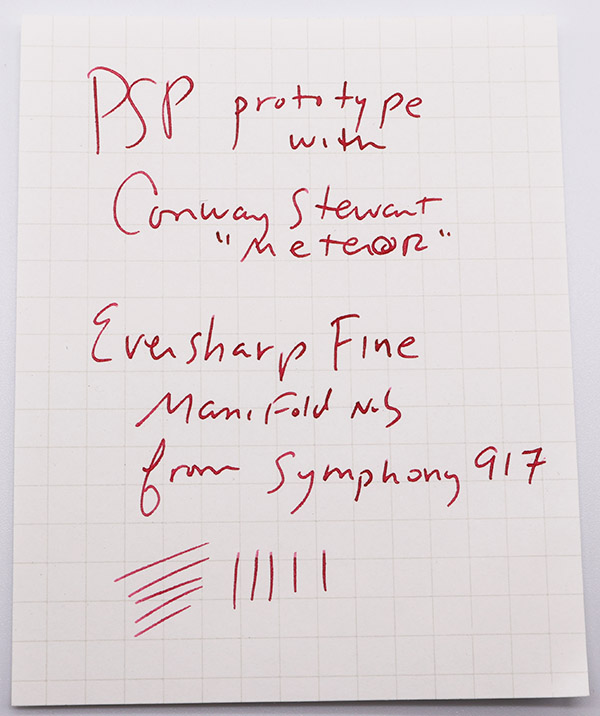 PSP prototype
with
Conway Stewart
"MeteOR"
Eversharp Fine
Manifold Nib
from Symphony 917